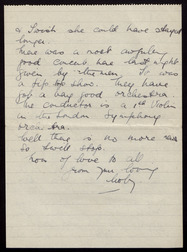 & Loosh she could have stayed
longer.
There was a most awfully
good concert here last night
given by the men. It was
a tip top show. They have
got a very good orchestra
The conductor is a 1st Violin
in the London Symphony
orchestra.
Well there is no more news
so I will stop.
Tons of love to all
from your loving